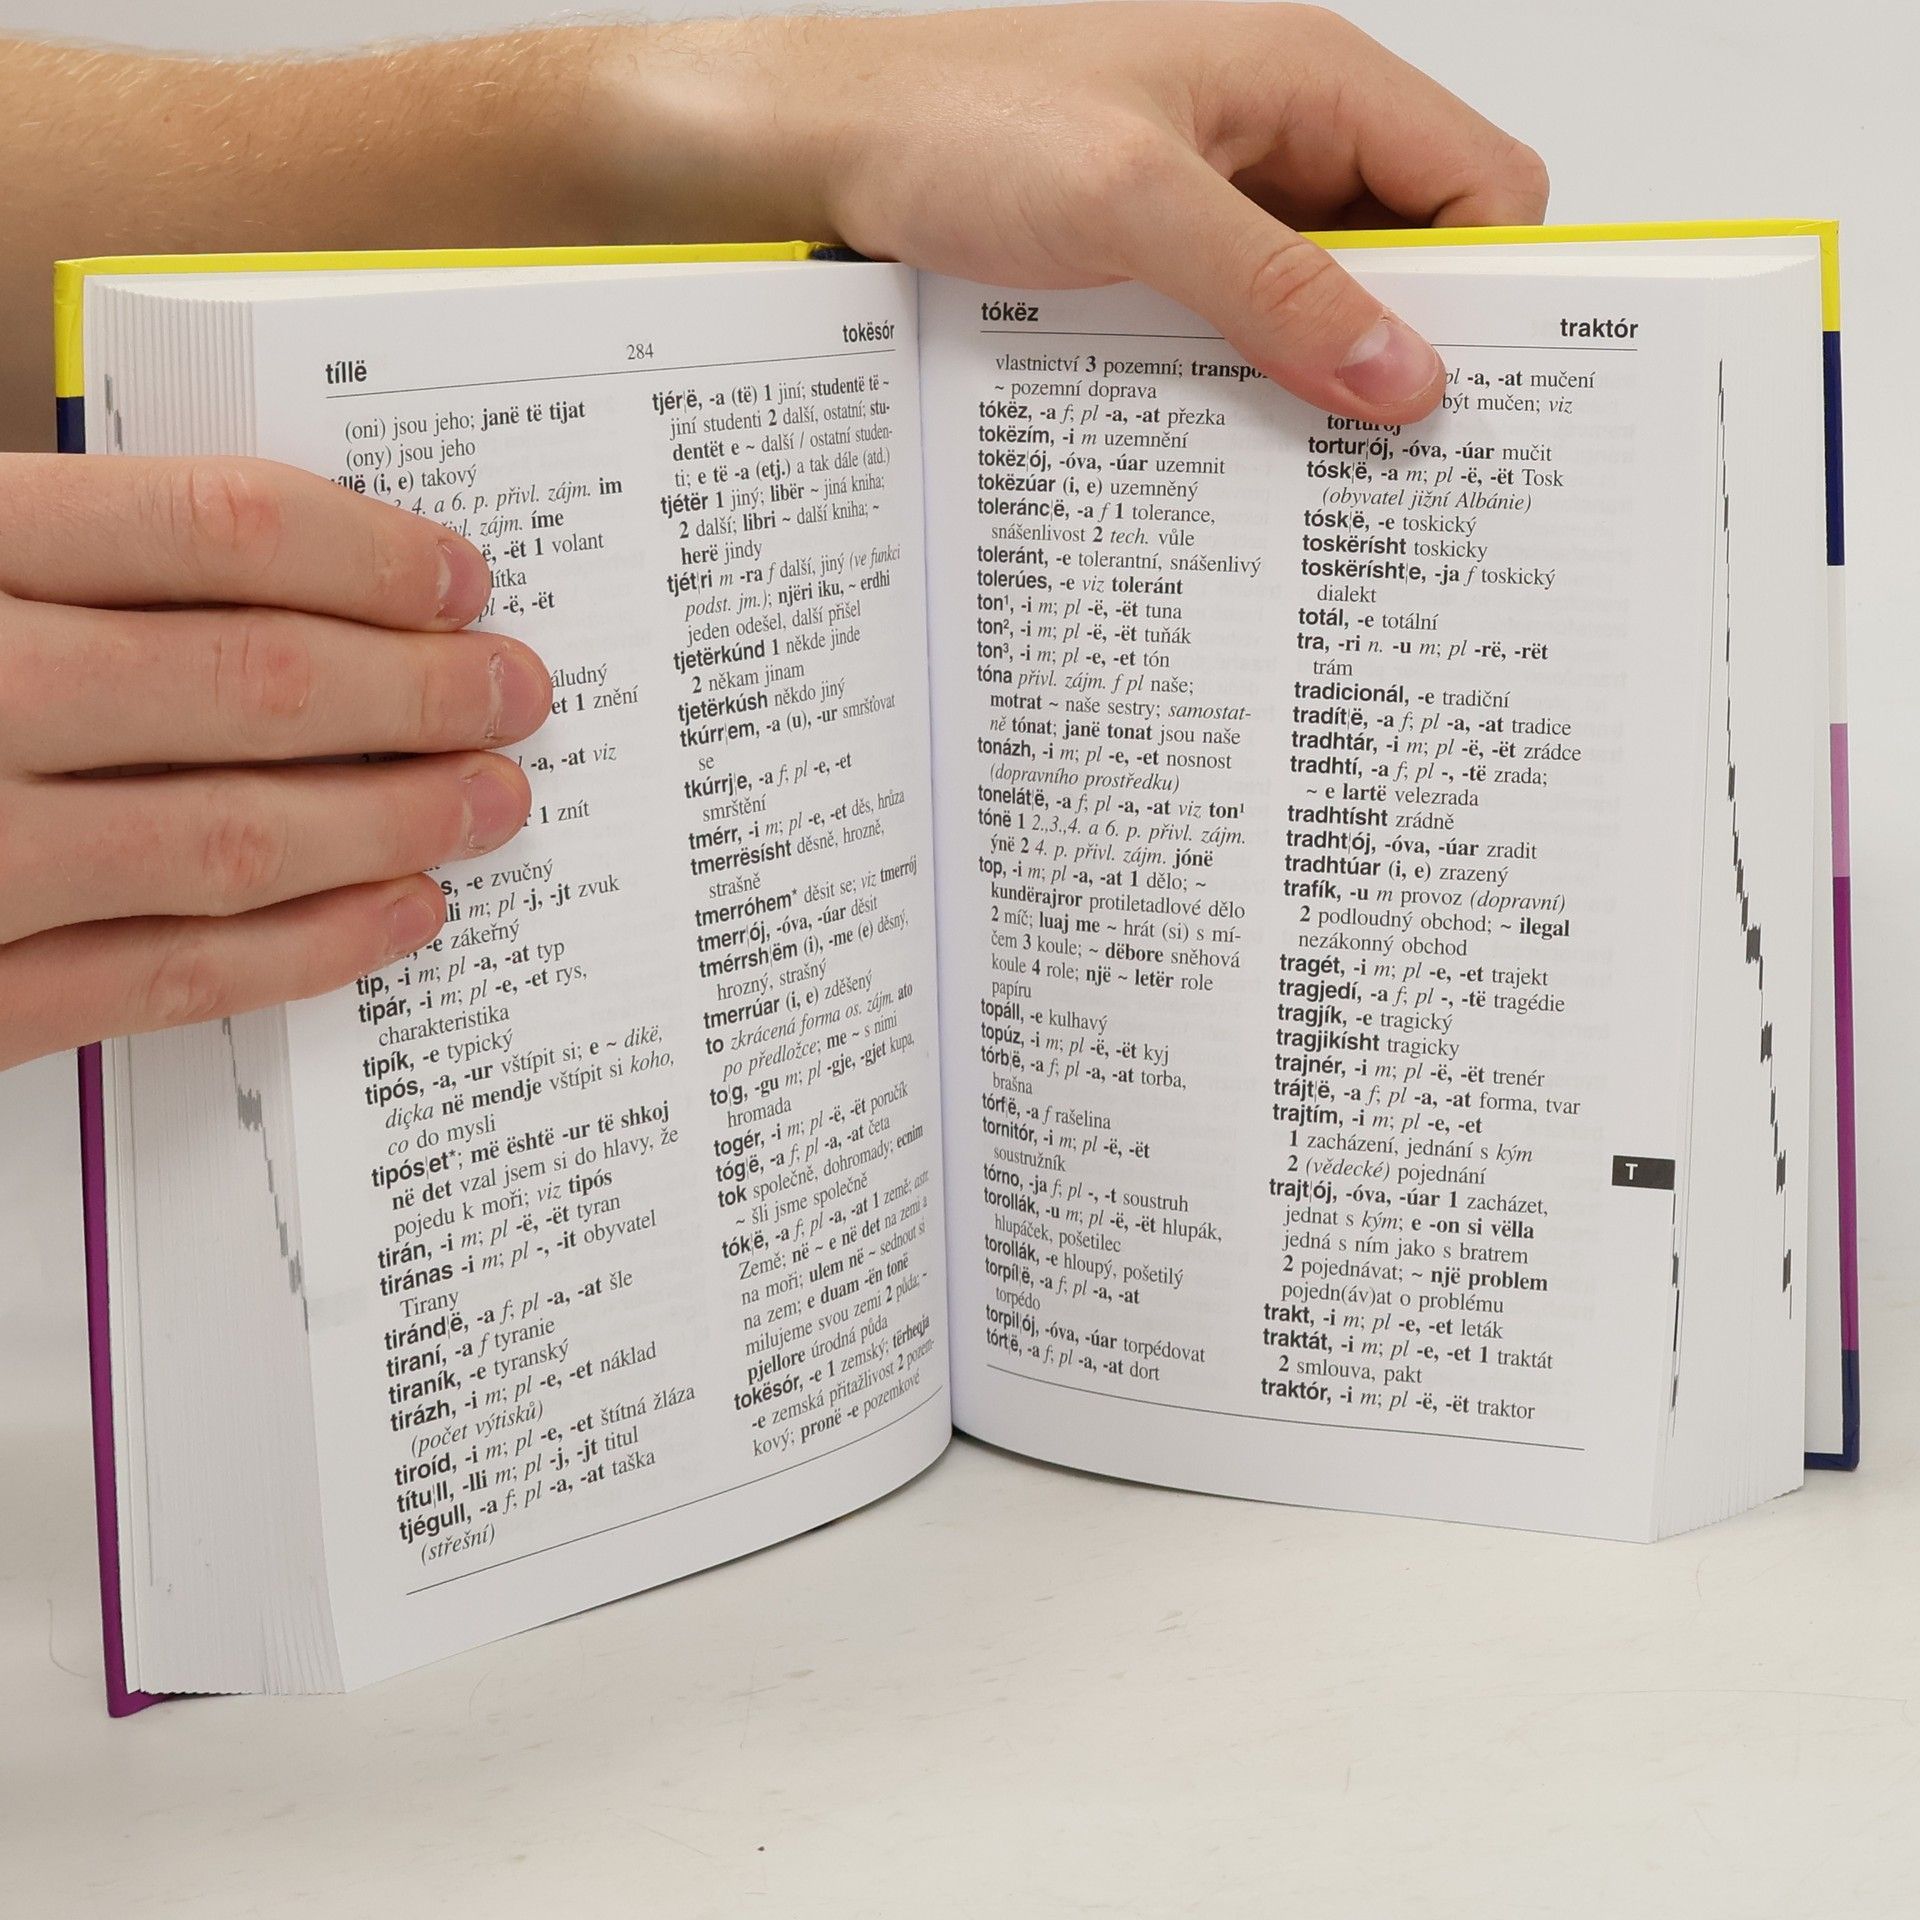 tíllë
284
tokësór
(oni) jsou jeho; janë të tijat
(ony) jsou jeho
(i, e) takový
4. a 6. p. přivl. zájm. im
zájm. íme
-ët 1 volant
pl -ë, -ët
et 1 znění
-a, -at viz
1 znít
-e zvučný
lli m; pl -j, -jt zvuk
-e zákeřný
tip, -i m; pl -a, -at typ
tipár, -i m; pl -e, -et rys,
charakteristika
tipík, -e typický
tipós, -a, -ur vštípit si; e ~ dikë,
diçka në mendje vštípit si koho,
co do mysli
tipós|et*; më është -ur të shkoj
në det vzal jsem si do hlavy, že
pojedu k moři; viz tipós
tirán, -i m; pl -ë, -ët tyran
tiránas -i m; pl -, -it obyvatel
Tirany
tiránd|ë, -a f; pl -a, -at šle
tiraní, -a f tyranie
tiraník, -e tyranský
tirázh, -i m; pl -e, -et náklad
(počet výtisků)
tiroíd, -i m; pl -e, -et štítná žláza
títu|ll, -lli m; pl -j, -jt titul
tjégull, -a f; pl -a, -at taška
(střešní)
tjér|ë, -a (të) 1 jiní; studentë të ~
jiní studenti 2 další, ostatní; stu-
dentët e ~ další / ostatní studen-
ti; e të -a (etj.) a tak dále (atd.)
tjetër 1 jiný; libër ~ jiná kniha;
2 další; libri ~ další kniha; ~
herë jindy
tjét|ri m -ra f další, jiný (ve funkci
podst. jm.); njëri iku, ~ erdhi
jeden odešel, další přišel
tjetërkúnd 1 někde jinde
2 někam jinam
tjetërkúsh někdo jiný
tkúrr|em, -a (u), -ur smršťovat
se
tkúrrj|e, -a f; pl -e, -et
smrštění
tmérr, -i m; pl -e, -et děs, hrůza
tmerrësísht děsně, hrozně,
strašně
tmerróhem* děsit se; viz tmerrój
tmerr|ój, -óva, -úar děsit
tmérrsh|ëm (i), -me (e) děsný,
hrozný, strašný
tmerrúar (i, e) zděšený
to zkrácená forma os. zájm. ato
po předložce; me ~ s nimi
to|g, -gu m; pl -gje, -gjet kupa,
hromada
togér, -i m; pl -ë, -ët poručík
tóg|ë, -a f; pl -a, -at četa
tok společně, dohromady; ecnim
~ šli jsme společně
tók|ë, -a f; pl -a, -at 1 země; astr.
Země; në ~ e në det na zemi a
na moři; ulem në ~ sednout si
na zem; e duam -ën tonë
milujeme svou zemi 2 půda; ~
pjellore úrodná půda
tokësór, -e 1 zemský; tërheqja
-e zemská přitažlivost 2 pozem-
kový; pronë -e pozemkové
tókëz
traktór
vlastnictví 3 pozemní;
~ pozemní doprava
tókëz, -a f; pl -a, -at přezka
tokëzím, -i m uzemnění
tokëz|ój, -óva, -úar uzemnit
tokëzúar (i, e) uzemněný
toleránc|ë, -a f 1 tolerance,
snášenlivost 2 tech. vůle
toleránt, -e tolerantní, snášenlivý
tolerúes, -e viz toleránt
ton¹, -i m; pl -ë, -ët tuna
ton², -i m; pl -ë, -ët tuňák
ton³, -i m; pl -e, -et tón
tóna přivl. zájm. f pl naše;
motrat ~ naše sestry; samostat-
ně tónat; janë tonat jsou naše
tonázh, -i m; pl -e, -et nosnost
(dopravního prostředku)
tonelát|ë, -a f; pl -a, -at viz ton¹
tónë 1 2.,3.,4. a 6. p. přivl. zájm.
ýnë 2 4. p. přivl. zájm. jónë
top, -i m; pl -a, -at 1 dělo; ~
kundërajror protiletadlové dělo
2 míč; luaj me ~ hrát (si) s mí-
čem 3 koule; ~ dëbore sněhová
koule 4 role; një ~ letër role
papíru
topáll, -e kulhavý
topúz, -i m; pl -ë, -ët kyj
tórb|ë, -a f; pl -a, -at torba,
brašna
tórf|ë, -a f rašelina
tornitór, -i m; pl -ë, -ët
soustružník
tórno, -ja f; pl -, -t soustruh
torollák, -u m; pl -ë, -ët hlupák,
hlupáček, pošetilec
torollák, -e hloupý, pošetilý
torpíl|ë, -a f; pl -a, -at
torpédo
torpil|ój, -óva, -úar torpédovat
tórt|ë, -a f; pl -a, -at dort
pl -a, -at mučení
být mučen; viz
torturój
tortur|ój, -óva, -úar mučit
tósk|ë, -a m; pl -ë, -ët Tosk
(obyvatel jižní Albánie)
tósk|ë, -e toskický
toskërísht toskicky
toskërísht|e, -ja f toskický
dialekt
totál, -e totální
tra, -ri n. -u m; pl -rë, -rët
trám
tradicionál, -e tradiční
tradít|ë, -a f; pl -a, -at tradice
tradhtár, -i m; pl -ë, -ët zrádce
tradhtí, -a f; pl -, -të zrada;
~ e lartë velezrada
tradhtísht zrádně
tradht|ój, -óva, -úar zradit
tradhtúar (i, e) zrazený
trafík, -u m provoz (dopravní)
2 podloudný obchod; ~ ilegal
nezákonný obchod
tragét, -i m; pl -e, -et trajekt
tragjedí, -a f; pl -, -të tragédie
tragjík, -e tragický
tragjikísht tragicky
trajnér, -i m; pl -ë, -ët trenér
trájt|ë, -a f; pl -a, -at forma, tvar
trajtím, -i m; pl -e, -et
1 zacházení, jednání s kým
2 (vědecké) pojednání
trajt|ój, -óva, -úar 1 zacházet,
jednat s kým; e -on si vëlla
jedná s ním jako s bratrem
2 pojednávat; ~ një problem
pojedn(áv)at o problému
trakt, -i m; pl -e, -et leták
traktát, -i m; pl -e, -et 1 traktát
2 smlouva, pakt
traktór, -i m; pl -ë, -ët traktor
T